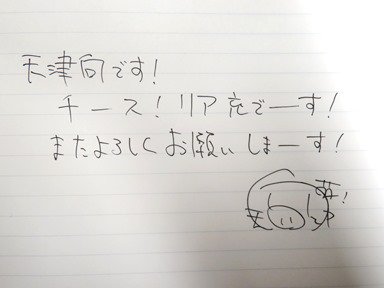 天津向です!
チース!リア充でーす!
またよろしくお願いしまーす!